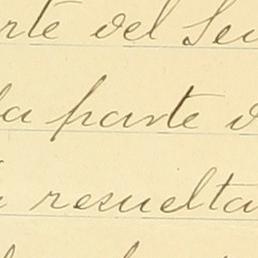 rte del Se
la parte d
resuelta